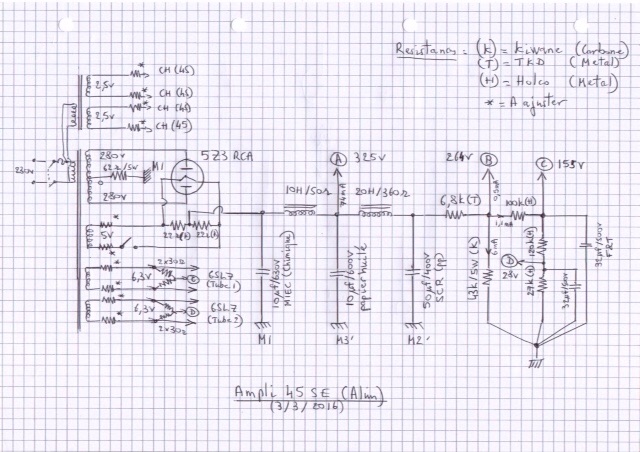 Resistances : (K) = Kiwame (Carbone)
(T) = TKD (Metal)
(H) = Holco (Metal)
* = A ajuster
* CH (45)
2,5v
* CH (45)
* CH (45)
2,5v
* CH (45)
230v
280v
5Z3 RCA
M1
280v
A 325v
264v B
C 155v
10H/50Ω
74mA
20H/360Ω
6,8k (T)
0,5mA
100k(H)
5v
6mA
120k(H)
D
28v
43k/5W (K)
32µf/50v
FRT
10µf/630v
MIEC (Chimique)
10µf/600v
papier huilé
50µf/400v
SCR (pp)
2x30Ω
6,3v
6SL7
(Tube 1)
6,3v
D
6SL7
(Tube 2)
2x30Ω
M1
M3'
M2'
Ampli 45 SE (Alim)
(3/3/2016)